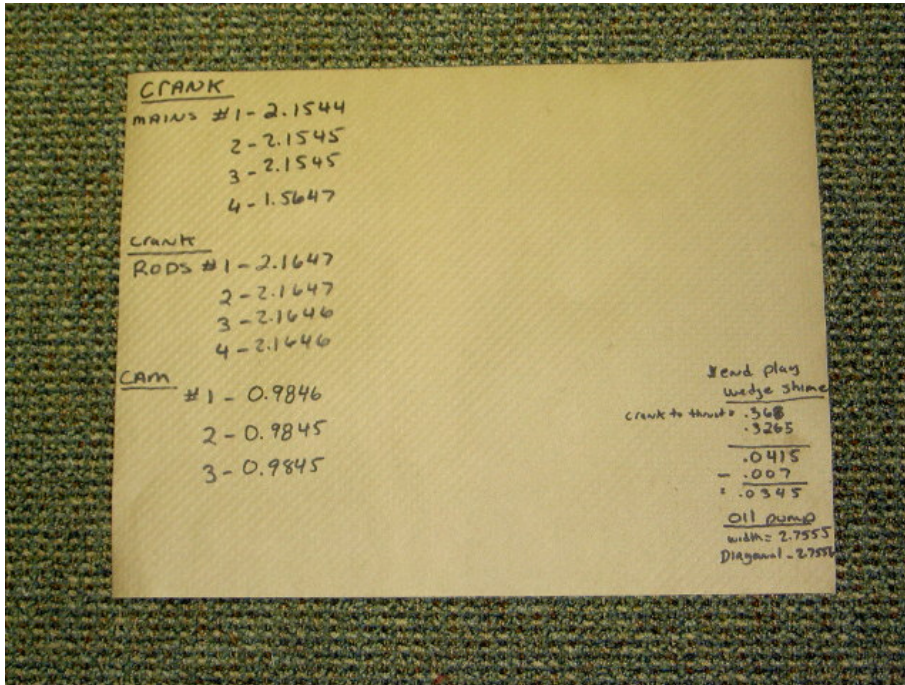 CRANK
MAINS #1-2.1544
2-2.1545
3-2.1545
4-1.5647
Crank
RODS #1-2.1647
2-2.1647
3-2.1646
4-2.1646
CAM
#1-0.9846
2-0.9845
3-0.9845
end play
wedge shime
crank to thrust = .368
.3265
.0415
- .007
= .0345
Oil pump
width = 2.7555
Diagonal - 2.7556